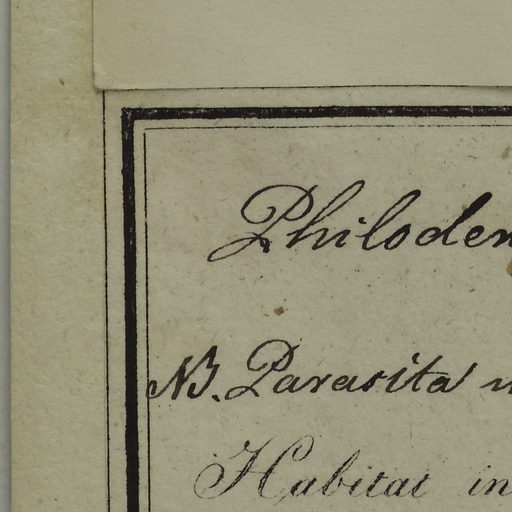 Philoden
NB. Parasita
Habitat in